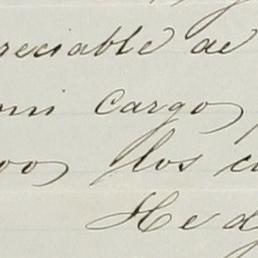 reciable de
mi cargo
los
He d